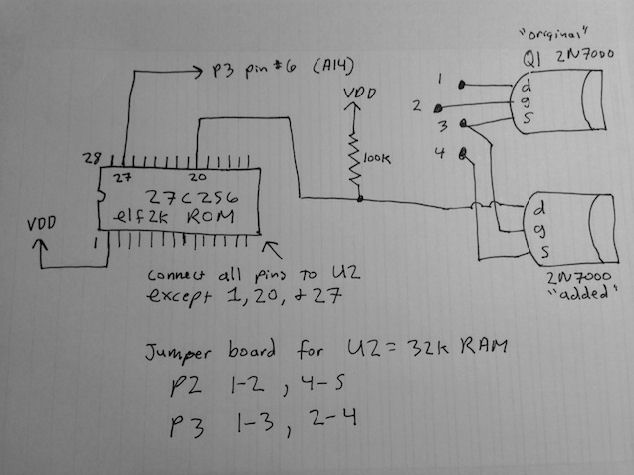 "original"
Q1 2N7000
P3 pin #6 (A14)
VDD
1
d
2
g
3
s
4
100K
28
27
20
27C256
elf2k ROM
VDD
1
d
g
s
connect all pins to U2
except 1, 20, + 27
2N7000
"added"
Jumper board for U2 = 32k RAM
P2 1-2, 4-5
P3 1-3, 2-4